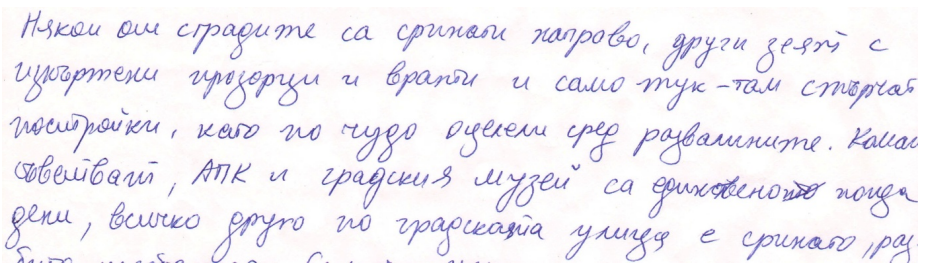 Някои от сградите са сринати направо, други зеят с
изкъртени прозорци и врати и само тук-там стърчат
постройки, като по чудо оцелели сред развалините. Комаи
съветват, АПК и градския музей са единственото поща
дени, всичко друго по градската улица е сринато, раз